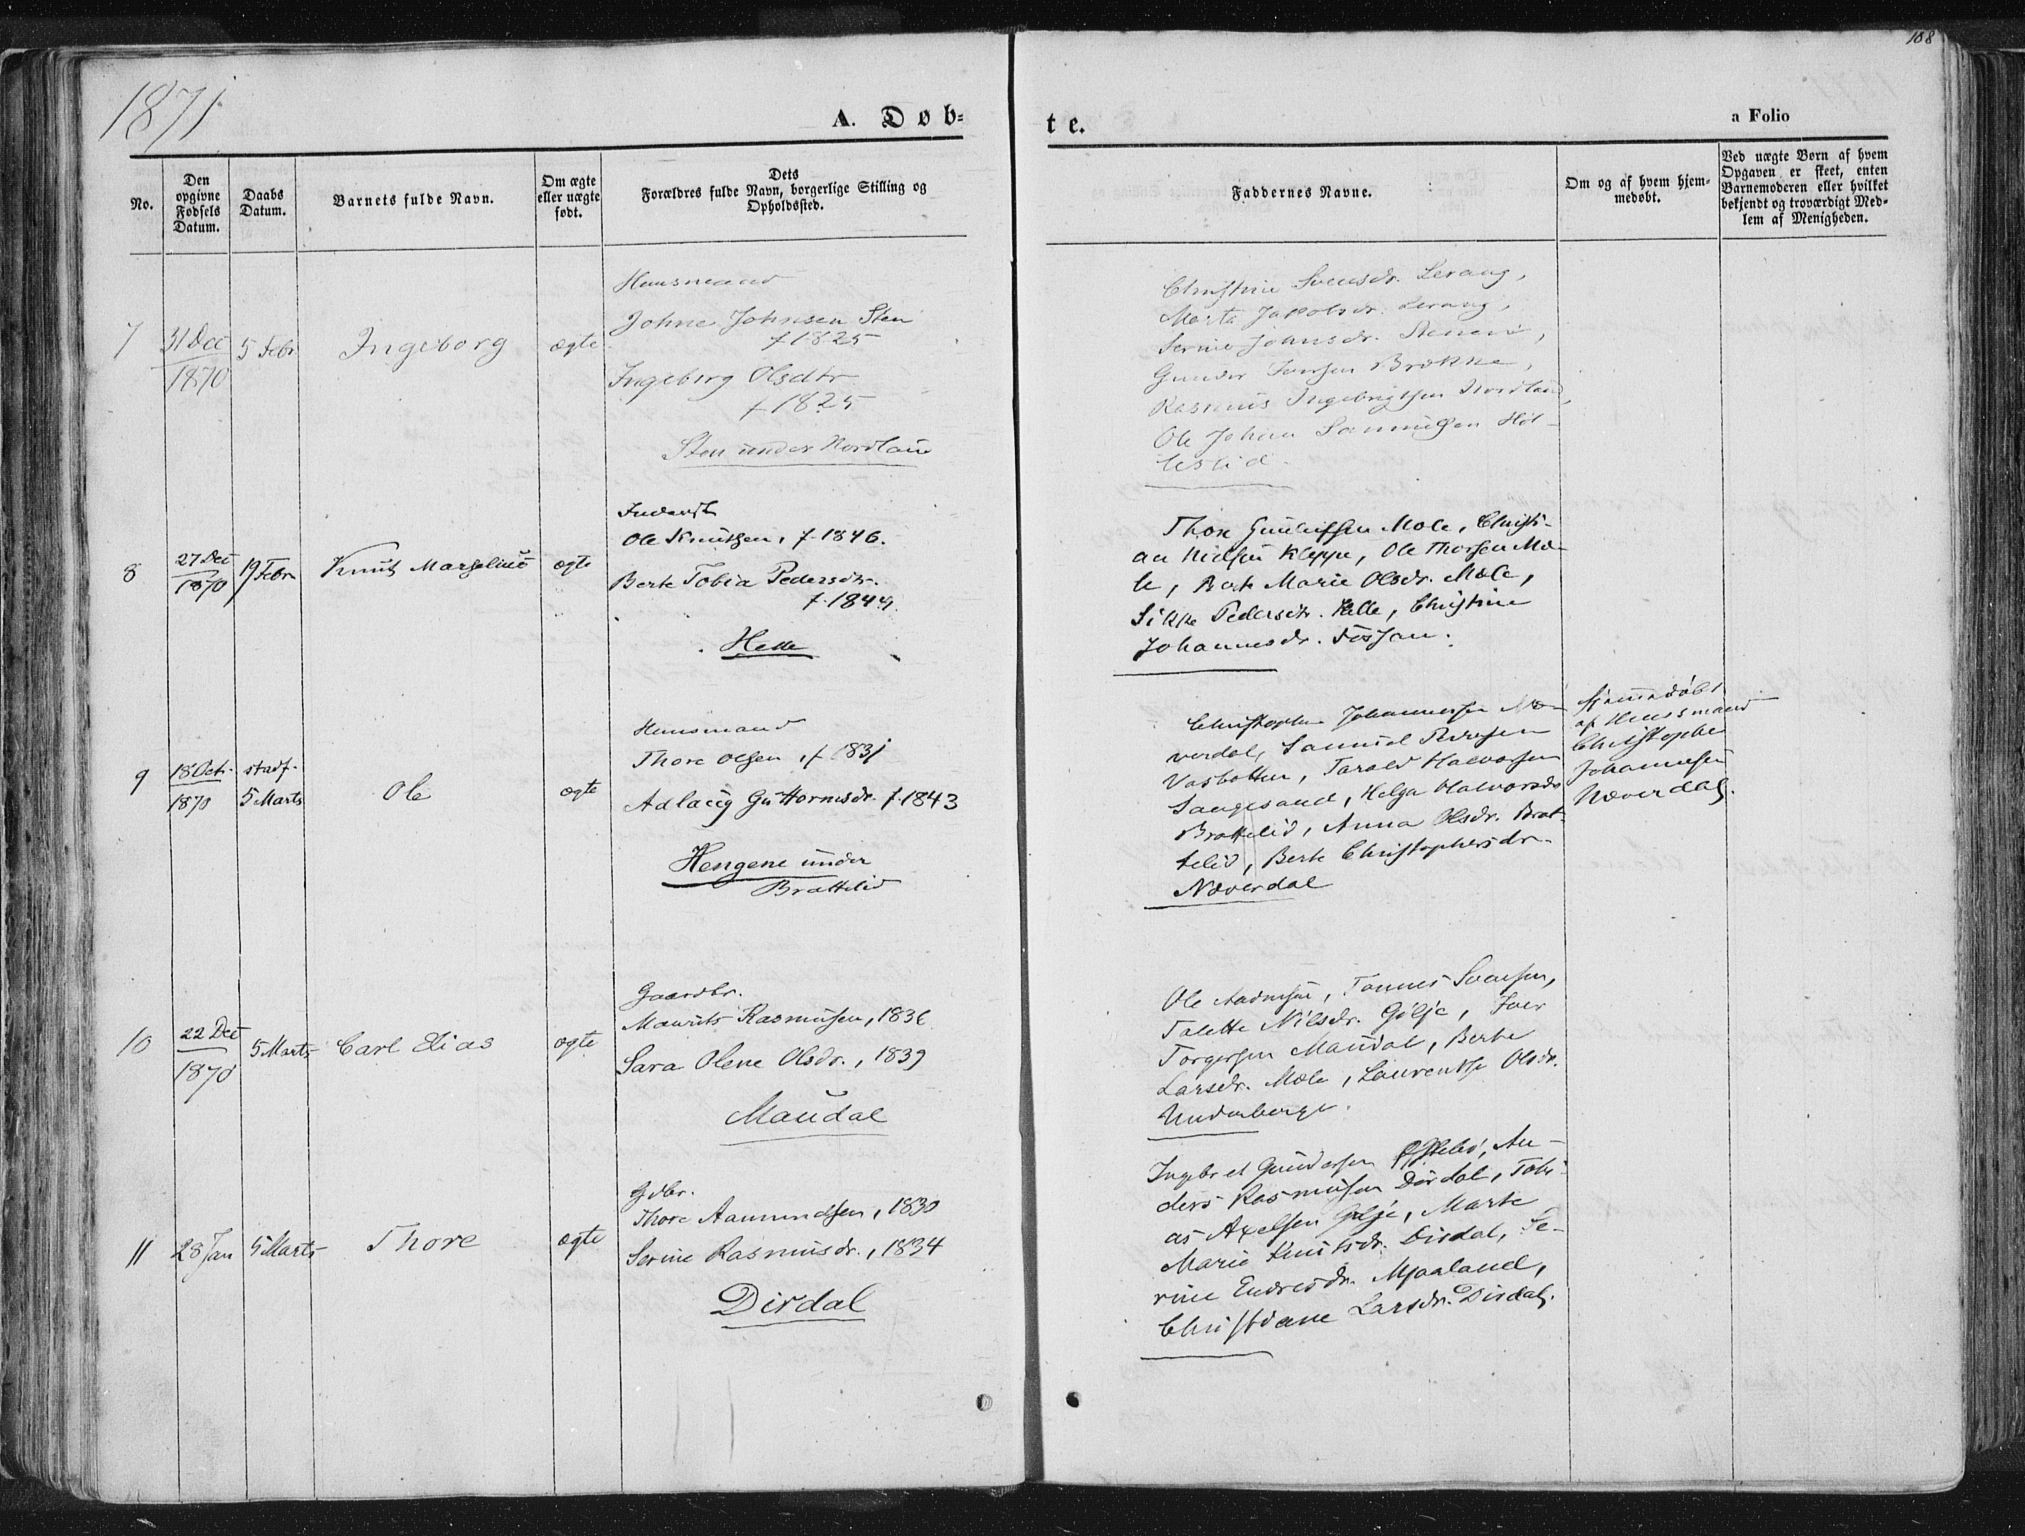 108
1871
A. Døb-
te.
a Folio
No.
Den opgivne Fødsels Datum.
Daabs Datum.
Barnets fulde Navn.
Om ægte eller uægte født.
Dets Forældres fulde Navn, borgerlige Stilling og Opholdssted.
Faddernes Navne.
Om og af hvem hjemmedøbt.
Ved uægte Børn af hvem Opgaven er skeet, enten Barnemoderen eller hvilket bekjendt og troværdigt Medlem af Menigheden.
7
31 Dec
1870
5 Febr
Ingeborg
ægte
Huusmand
Johne Johnsen Sten
f 1825
Ingeborg Olsdtr
f 1825
Sten under Nordland
Christine Svensdr. Lerang,
Marta Jakobsdr. Lerang,
Serine Johnsdr.
Gunder Brække,
Rasmus Ingebrigtsen Nordland,
Ole Johan Samuelsen Høl-
leslid.
8
27 Dec
1870
19 Febr
Knud Margelius
ægte
Ole Knutsen, f. 1846.
Berte Tobia Pedersdr.
f. 1844.
Helle
Thore Gunlufsen Mæle, Christi-
an Nielsen Kleppe, Ole Thorsen Mæ-
le, Berte Marie Olsdr. Mæle,
Sikke Pedersdr. Helle, Christine
Johannesdr. Fosfan.
9
18 Oct.
1870
stadf.
5 Marts
Ole
ægte
Huusmand
Thore Olsen, f 1831
Adlaug Guttormsdr. f. 1843
Hengene under
Brattelid
Christopher Johannessen Næ-
verdal, Samuel
Vasbotten, Tarald Halvorsen
Sangesand, Helga Halvorsdr
Brattelid, Anna Olsdr. Brat-
telid, Berte Christophersdr.
Næverdal
hjemmedøbt
af Huusmand
Christopher
Johannesen
Næverdal.
10
22 Dec
1870
5 Marts
Carl Elias
ægte
Gaardbr.
Maurits Rasmusen, 1836
Sara Olene Olsdr., 1839
Maudal
Ole Aadnesen, Tønnes Svensen,
Talette Nilsdr. Gilje, Iver
Torgersen Maudal, Berte
Larsdr. Mæle, Laurentse Olsdr.
Underberge.
11
28 Jan
5 Marts
Thore
ægte
Gdbr.
Thore Aamundsen, 1830
Serine Rasmusdr., 1834
Dirdal
Ingebret Gundersen An-
ders Rasmusen Dirdal, Tobi-
as Axelsen Gilje, Marte
Marie Knutsdr. Dirdal, Se-
rine Endresdr. Mjaaland,
Christiane Larsdr. Dirdal.